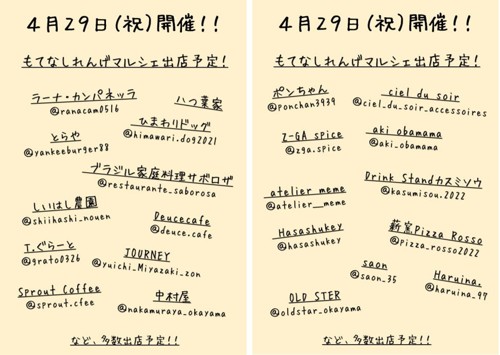 4月29日(祝)開催!!
もてなしれんげマルシェ出店予定!
ラーナ・カンパネッラ
@ranacam0516
八つ葉家
ひまわりドッグ
@himawari.dog2021
とらや
@yankeeburger88
ブラジル家庭料理サボロザ
@restaurante_saborosa
しいはし農園
@shiihashi_nouen
Deucecafe
@deuce.cafe
T.ぐらーと
@grato0326
JOURNEY
@yuichi_Miyazaki_zon
Sprout Coffee
@sprout.cfee
中村屋
@nakamuraya_okayama
など、多数出店予定!!
4月29日(祝)開催!!
もてなしれんげマルシェ出店予定!
ポンちゃん
@ponchan3939
ciel du soir
@ciel_du_soir_accessoires
Z-GA spice
@zga.spice
aki obamama
@aki_obamama
atelier meme
@atelier__meme
Drink Standカスミソウ
@kasumisou.2022
Hasashukey
@hasashukey
薪窯Pizza Rosso
@pizza_rosso2022
saon
@saon_35
Haruina.
@haruina_97
OLD STER
@oldstar_okayama
など、多数出店予定!!